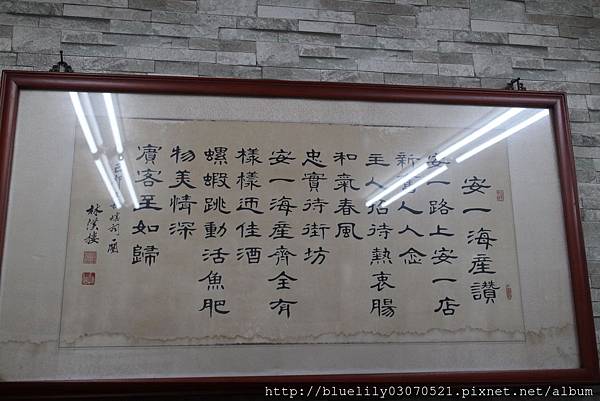 安一海産讚
安一路上安一店
新人人念
主人招待熱衷腸
和氣春風
忠實待街坊
安一海産齊全有
樣樣迊佳酒
螺蝦跳動活魚肥
物美情深
賓客至如歸
林漢接
http://bluelily03070521.pixnet.net/album